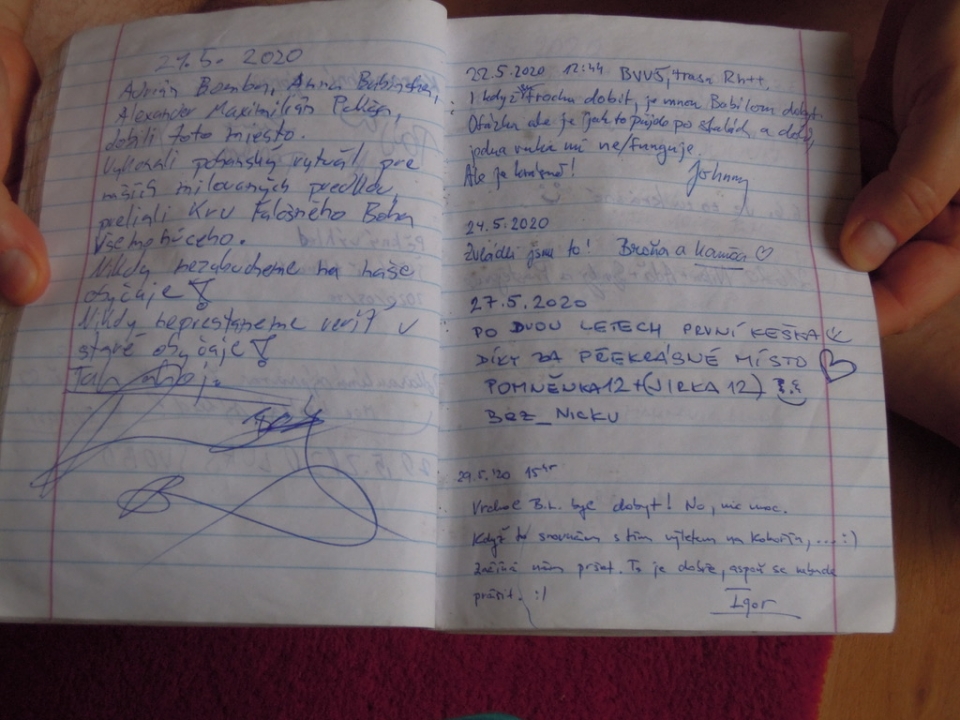 21.5. 2020
Adrián Bomban, Anna
Alexander Maximilián
dobili toto miesto.
Vykonali pohanský rytuál pre
našich milovaných predkov,
preliali Krv Falošného Boha
Všemohúceho.
Nikdy nezabudneme na naše
obyčaje!
Nikdy neprestaneme veriť v
staré obyčaje!
22.5.2020 12:44 BVVŠ, trasa Rh++.
I když trochu dobit, je mnou Babilom dobyt.
Otázka ale je jak to půjdo po skalách a dolů,
jedna ruka mi ne/funguje.
Ale je krásně!
Johnny
24.5.2020
Zvládli jsme to! Broňa a Kamča ♡
27.5.2020
PO DVOU LETECH PRVNÍ KEŠKA
DÍKY ZA PŘEKRÁSNÉ MÍSTO ♡
POMNĚNKA12+(JIRKA 12)
BEZ_NICKU
29.5.'20 15
Vrchol B.L. byl dobyt! No, nic moc.
Když to srovnám s tím výletem na Kokořín, ... :)
Začíná nám pršet. To je dobře, aspoň se nebude
prášit. :/
Igor